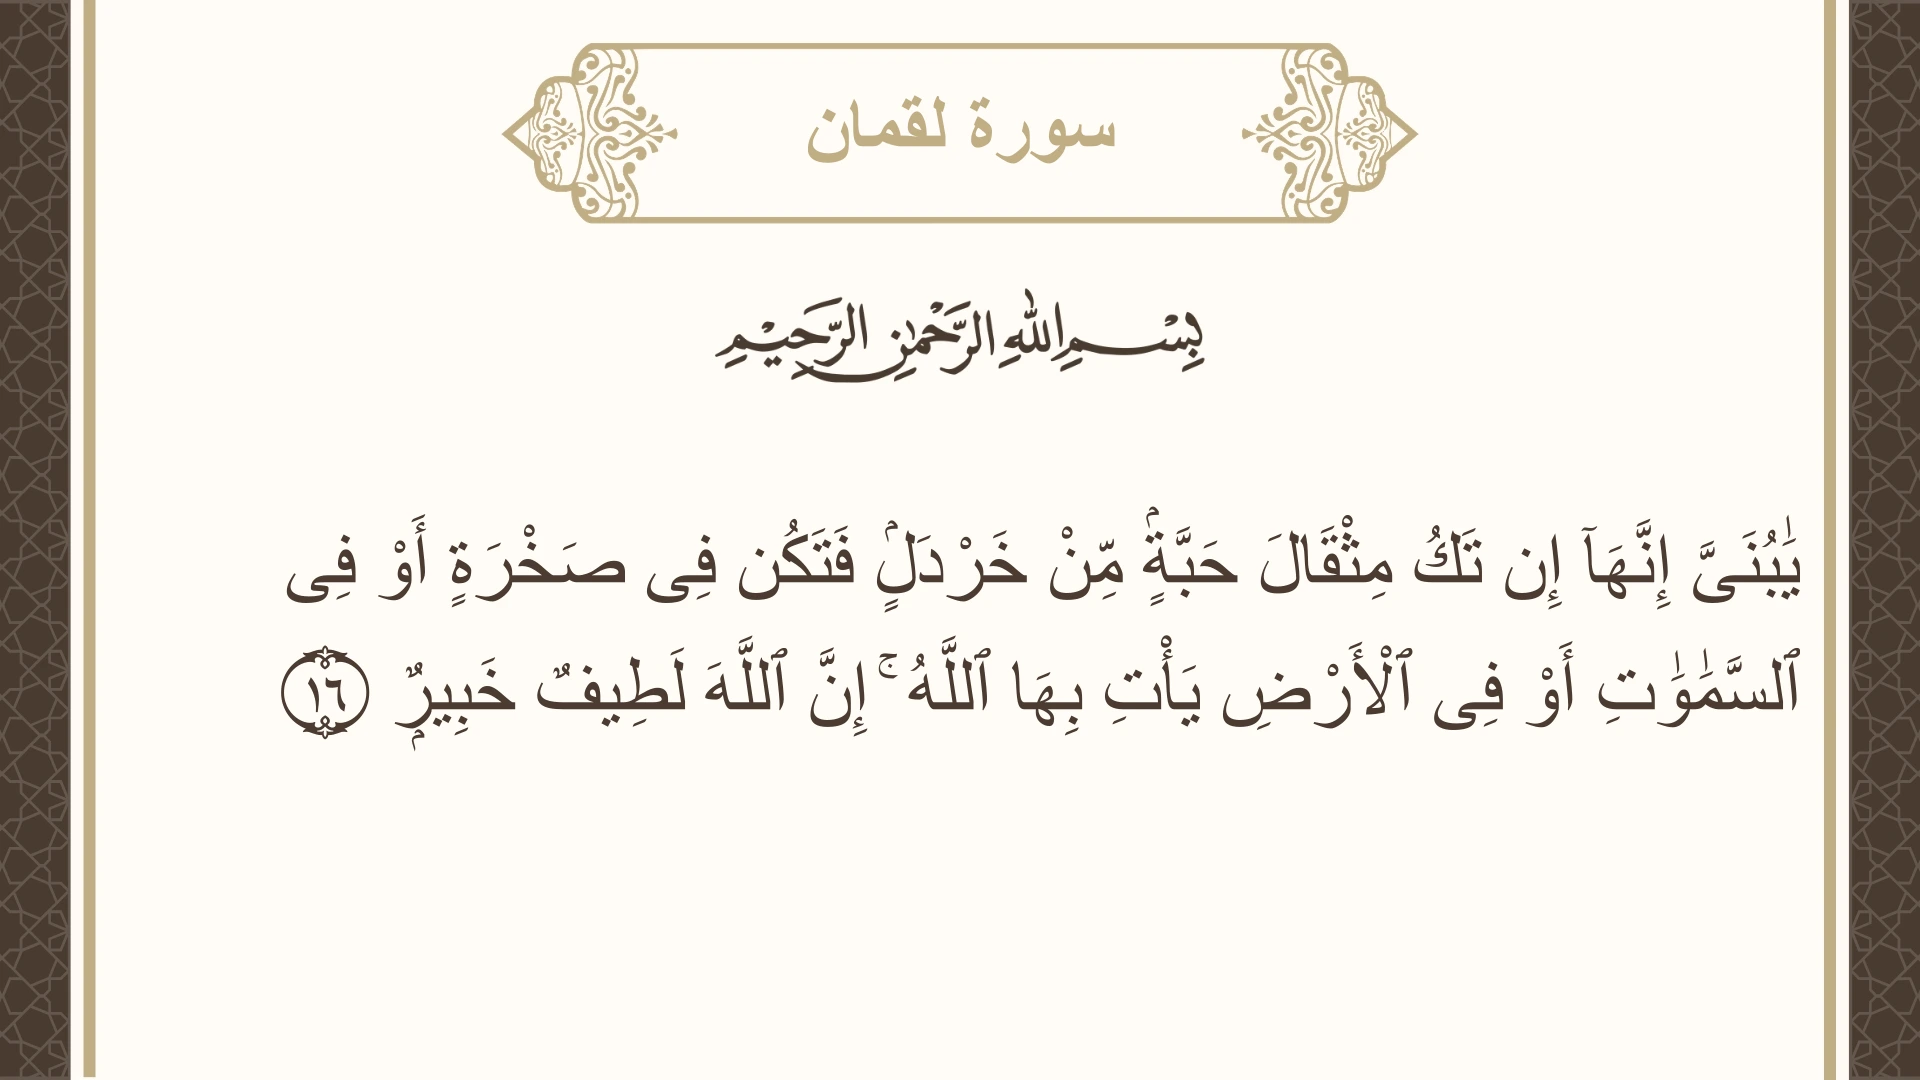 سورة لقمان
بِسْمِ اللهِ الرَّحْمٰنِ الرَّحِيْمِ
يَٰبُنَىَّ إِنَّهَآ إِن تَكُ مِثْقَالَ حَبَّةٍۢ مِّنْ خَرْدَلٍۢ فَتَكُن فِى صَخْرَةٍ أَوْ فِى
ٱلسَّمَٰوَٰتِ أَوْ فِى ٱلْأَرْضِ يَأْتِ بِهَا ٱللَّهُ ۚ إِنَّ ٱللَّهَ لَطِيفٌ خَبِيرٌۭ ١٦